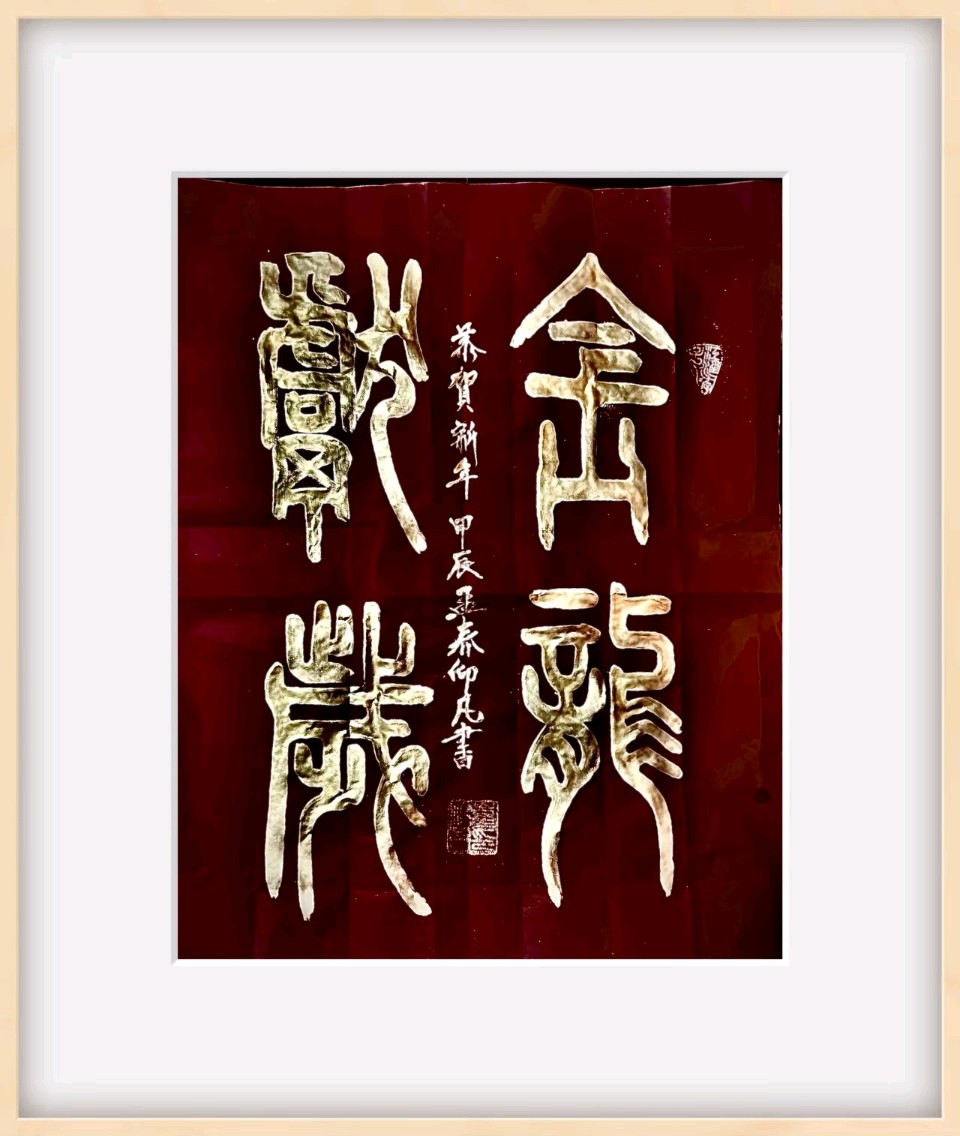 金龍
獻歲
恭賀新年甲辰孟春仰凡書